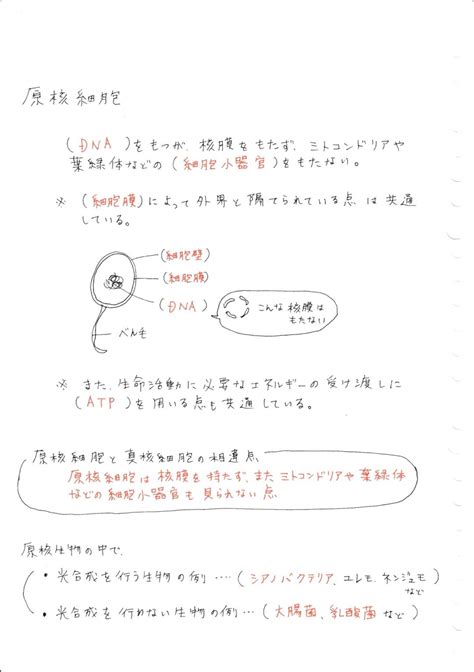 原核細胞
(DNA)をもつが、核膜をもたず、ミトコンドリアや
葉緑体などの(細胞小器官)をもたない。
※ (細胞膜)によって外界と隔てられている点は共通
している。
(細胞壁)
(細胞膜)
(DNA)
こんな核膜は
もたない
べん毛
※ また、生命活動に必要なエネルギーの受け渡しに
(ATP)を用いる点も共通している。
原核細胞と真核細胞の相違点
原核細胞は核膜を持たず、またミトコンドリアや葉緑体
などの細胞小器官も見られない点
原核生物の中で、
・光合成を行う生物の例‥‥(シアノバクテリア、ユレモ、ネンジュモ)
など
・光合成を行わない生物の例‥‥(大腸菌、乳酸菌など)